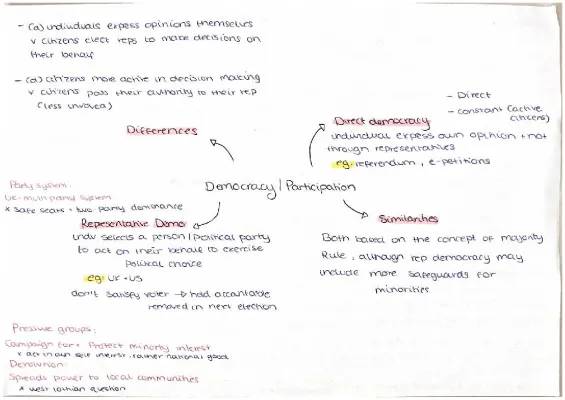 - (a) individuals express opinions themselves
v citizens elect reps to make decisions on
their behalf
- (d) citizens more active in decision making
v citizens pass their authority to their rep
(less involved)
Differences
- Direct
- constant (active
citizens)
Direct democracy
individual express own opinion + not
through representatives
eg: referendum, e-petitions
Democracy/Participation
Party system:
UK-multi party system
x safe seats - two party dominance
Representative Demo
indv selects a person/political party
to act on their behalf to exercise
political choice
eg: UK + US
don't satisfy voter → held accountable
removed in next election
Similarities
Both based on the concept of majority
Rule, although rep democracy may
include more safeguards for
minorities
Pressure groups:
Campaign for + Protect minority interest
x act in own self interest, rather national good
Devolution:
Spreads power to local communities
x west lothian question